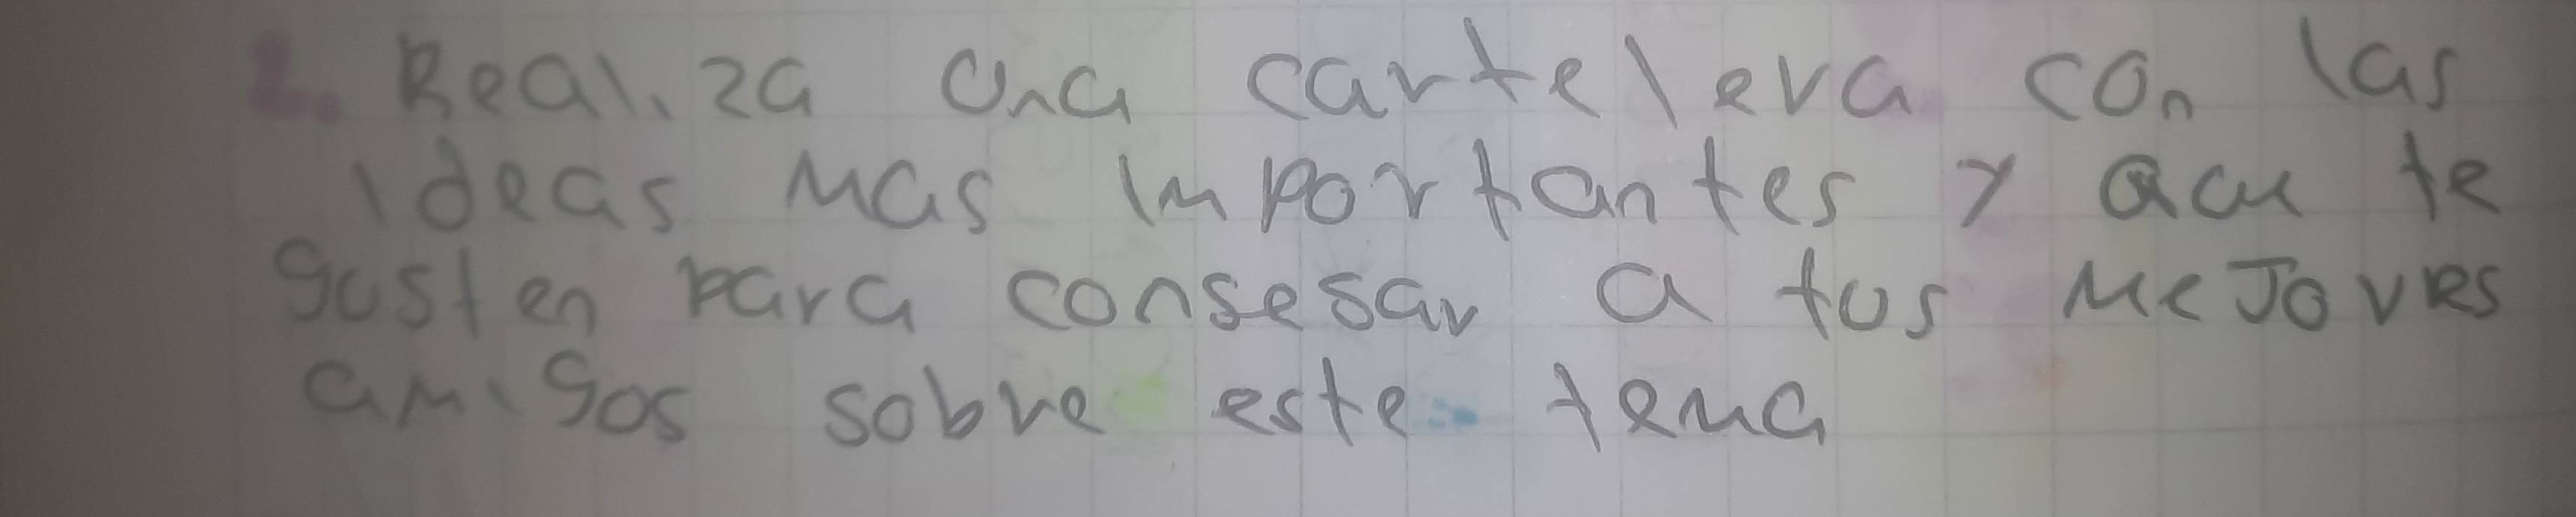 2. Realiza una cartelera con las
ideas mas importantes y que te
gusten para consesar a tus mejores
amigos sobre este tema